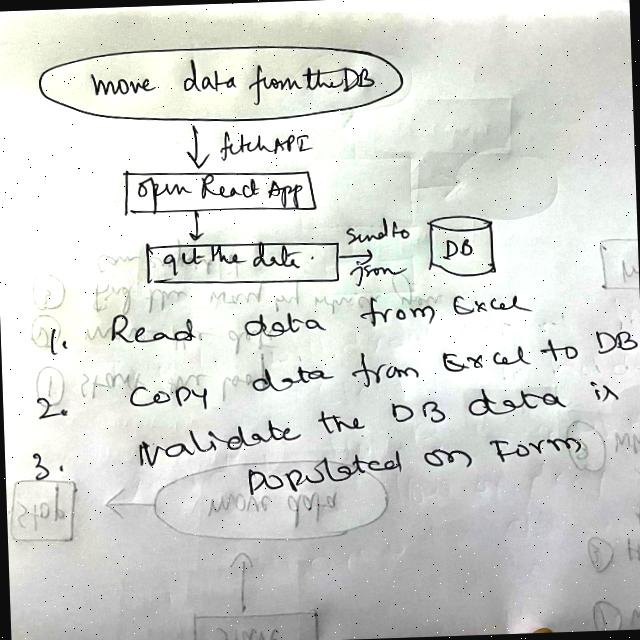 move data from the DB
fetch API
open React App
get the data.
send to
json
DB
1. Read data from Excel
2. Copy data from Excel to DB
3. Validate the DB data is
populated on Form
move data